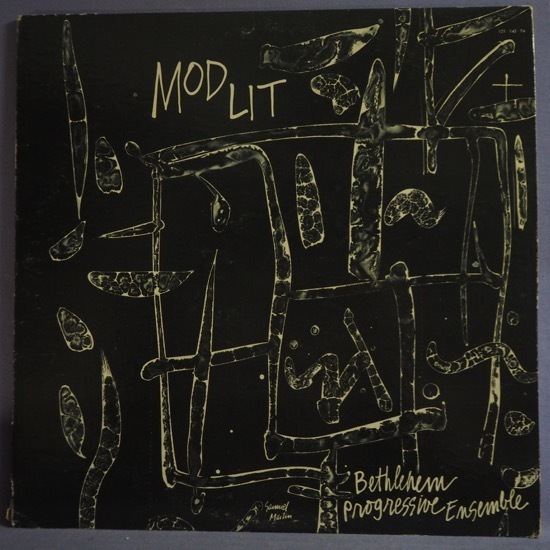 MOD LIT
Bethlehem
Progressive Ensemble
Samuel
Martin